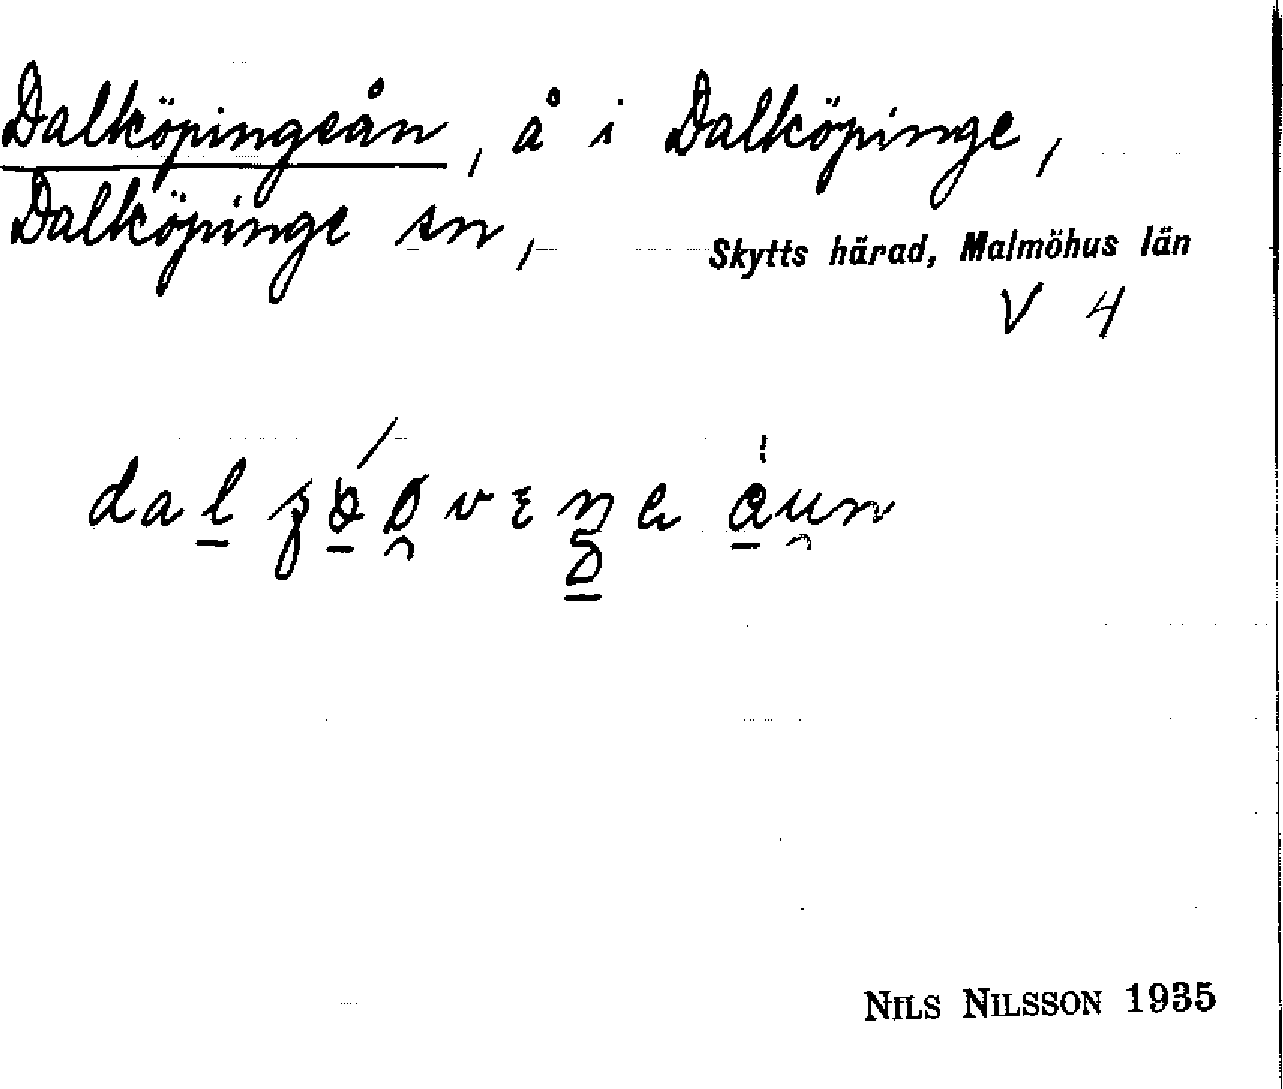 Dalköpingeån, å i Dalköpinge,
Dalköpinge sn, Skytts härad, Malmöhus län
V 4
NILS NILSSON 1935